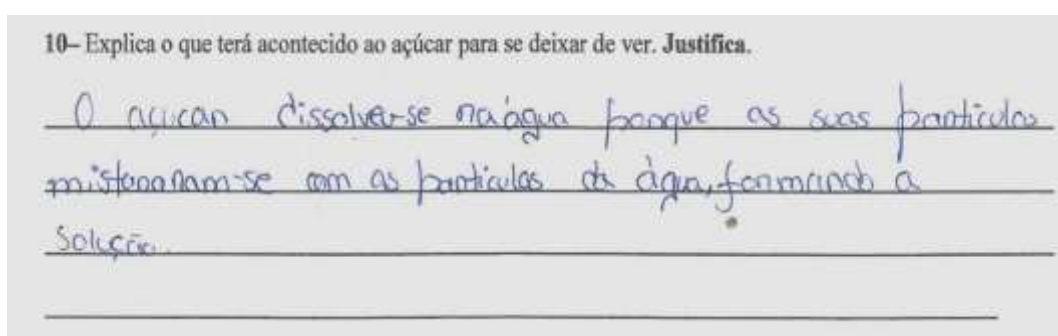 10– Explica o que terá acontecido ao açúcar para se deixar de ver. Justifica.
O açúcar dissolveu-se na água porque as suas partículas
misturaram-se com as partículas da água, formando a
solução.